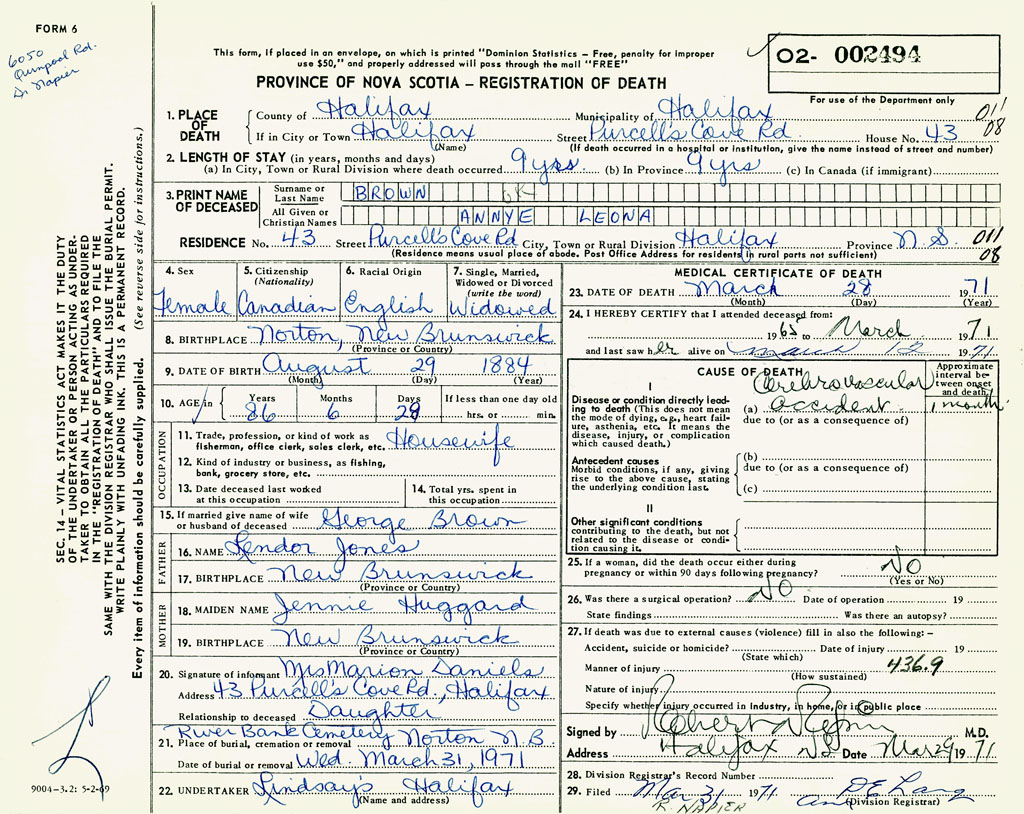 FORM 6
6050
Quinpool Rd.
Dr Napier
This form, if placed in an envelope, on which is printed "Dominion Statistics – Free, penalty for improper
use $50," and properly addressed will pass through the mail "FREE"
PROVINCE OF NOVA SCOTIA – REGISTRATION OF DEATH
02- 002494
For use of the Department only
1. PLACE OF DEATH
County of Halifax Municipality of Halifax 011
08
If in City or Town Halifax Street Purcell's Cove Rd. House No. 43
(Name) (If death occurred in a hospital or institution, give the name instead of street and number)
2. LENGTH OF STAY (in years, months and days)
(a) In City, Town or Rural Division where death occurred 9 yrs. (b) In Province 9 yrs (c) In Canada (if immigrant)
3. PRINT NAME OF DECEASED
Surname or Last Name BROWN OK
All Given or Christian Names ANNYE LEONA
RESIDENCE No. 43 Street Purcell's Cove Rd City, Town or Rural Division Halifax Province N.S. 011
08
(Residence means usual place of abode. Post Office Address for residents in rural parts not sufficient)
4. Sex
Female
5. Citizenship
(Nationality)
Canadian
6. Racial Origin
English
7. Single, Married,
Widowed or Divorced
(write the word)
Widowed
8. BIRTHPLACE Norton, New Brunswick
(Province or Country)
9. DATE OF BIRTH August 29 1884
(Month) (Day) (Year)
10. AGE in Years Months Days If less than one day old
86 6 28 hrs. or min.
OCCUPATION
11. Trade, profession, or kind of work as Housewife
fisherman, office clerk, sales clerk, etc.
12. Kind of industry or business, as fishing,
bank, grocery store, etc.
13. Date deceased last worked
at this occupation
14. Total yrs. spent in
this occupation
15. If married give name of wife
or husband of deceased George Brown
FATHER
16. NAME Lendor Jones
17. BIRTHPLACE New Brunswick
(Province or Country)
MOTHER
18. MAIDEN NAME Jennie Huggard
19. BIRTHPLACE New Brunswick
(Province or Country)
20. Signature of informant Mrs Marion Daniels
Address 43 Purcell's Cove Rd., Halifax
Relationship to deceased Daughter
River Bank Cemetery Norton N.B.
21. Place of burial, cremation or removal
Date of burial or removal Wed. March 31, 1971
22. UNDERTAKER Lindsay's Halifax
(Name and address)
MEDICAL CERTIFICATE OF DEATH
23. DATE OF DEATH March 28 1971
(Month) (Day) (Year)
24. I HEREBY CERTIFY that I attended deceased from:
1965 to March 1971
and last saw her alive on March 12 1971
CAUSE OF DEATH
Approximate
interval be-
tween onset
and death
I
Cerebrovascular
Disease or condition directly lead-
ing to death (This does not mean
the mode of dying, e.g., heart fail-
ure, asthenia, etc. It means the
disease, injury, or complication
which caused death.)
(a) Accident 1 month
due to (or as a consequence of)
Antecedent causes
Morbid conditions, if any, giving
rise to the above cause, stating
the underlying condition last.
(b)
due to (or as a consequence of)
(c)
II
Other significant conditions
contributing to the death, but not
related to the disease or condi-
tion causing it.
25. If a woman, did the death occur either during
pregnancy or within 90 days following pregnancy? No
(Yes or No)
26. Was there a surgical operation? No Date of operation 19
State findings Was there an autopsy?
27. If death was due to external causes (violence) fill in also the following: –
Accident, suicide or homicide? Date of injury 19
(State which)
Manner of injury 436.9
(How sustained)
Nature of injury
Specify whether injury occurred in industry, in home, or in public place
Signed by Robert M.D.
Address Halifax NS Date Mar 29 1971
28. Division Registrar's Record Number
29. Filed Mar 31 1971 D E Lang
(Division Registrar)
R. NAPIER
SEC. 14 – VITAL STATISTICS ACT MAKES IT THE DUTY
OF THE UNDERTAKER OR PERSON ACTING AS UNDER-
TAKER TO OBTAIN ALL THE PARTICULARS REQUIRED
IN THE "REGISTRATION OF DEATH" AND TO FILE THE
SAME WITH THE DIVISION REGISTRAR WHO SHALL ISSUE THE BURIAL PERMIT.
WRITE PLAINLY WITH UNFADING INK. THIS IS A PERMANENT RECORD.
Every item of information should be carefully supplied. (See reverse side for instructions.)
9004-3.2: 5-2-69